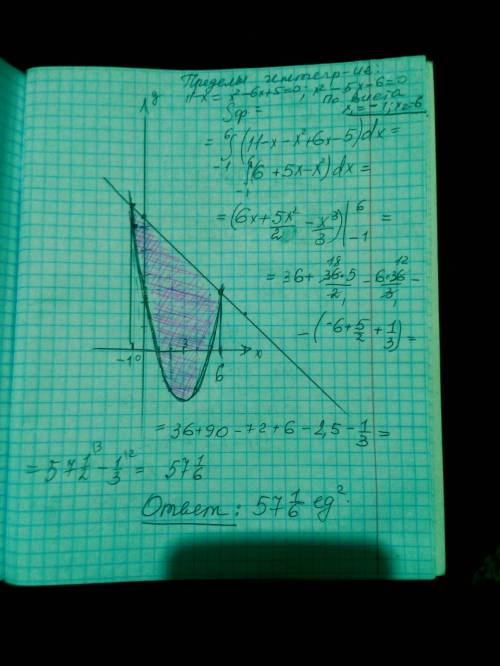 Пределы интегр-ия:
11-x = x²-6x+5=0; x²-5x-6=0
По Виета
Sф = x₁=-1; x₂=6
= ∫₋₁⁶ (11-x-x²+6x-5)dx =
∫₋₁ (6+5x-x²)dx =
= (6x + 5x²/2 - x³/3) |₋₁⁶ =
= 36 + 36·5/2 - 6·36/3 -
18 12
- (-6 + 5/2 + 1/3) =
y
-1 0 3 6 x
= 36+90-72+6-2,5-1/3 =
= 57 1/2 - 1/3 = 57 1/6
Ответ: 57 1/6 ед².